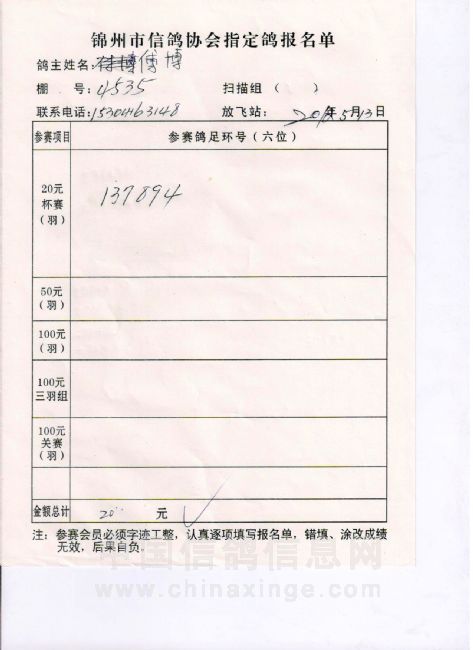 锦州市信鸽协会指定鸽报名单
鸽主姓名: 傅博
棚 号: 4535 扫描组 ( )
联系电话: 15304163148 放飞站: 年5月13日
参赛项目 参赛鸽足环号(六位)
20元
杯赛
(羽)
137894
50元
(羽)
100元
(羽)
100元
三羽组
100元
关赛
(羽)
金额总计 20 元
注: 参赛会员必须字迹工整, 认真逐项填写报名单, 错填、涂改成绩
无效, 后果自负。
中国信鸽信息网
www.chinaxinge.com